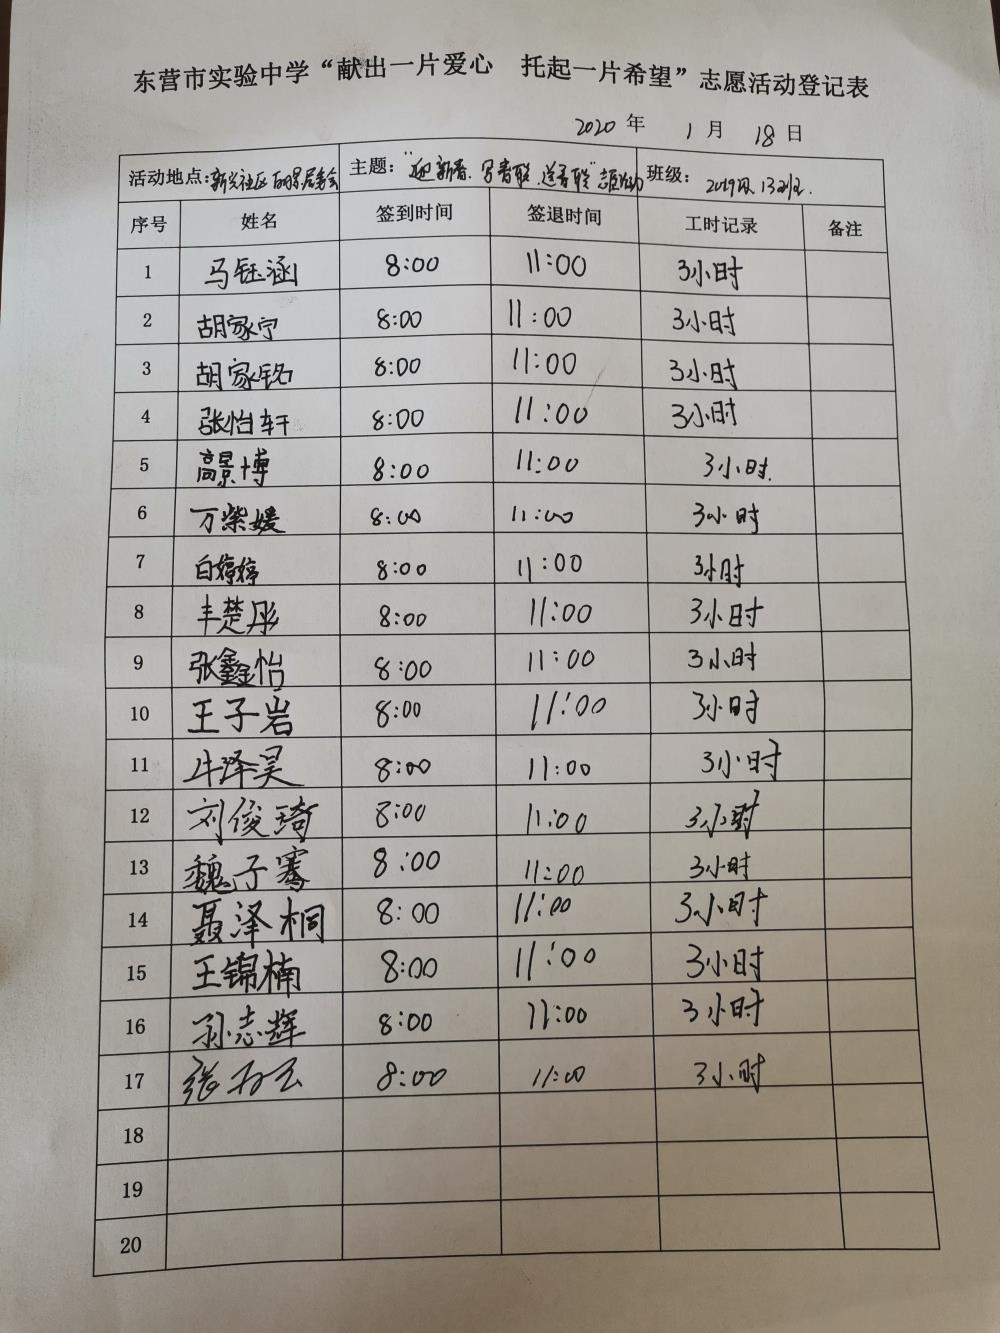 东营市实验中学“献出一片爱心 托起一片希望”志愿活动登记表
2020年 1月 18日
活动地点:新兴社区 居委会 主题:“迎新春.写春联.送春联”志愿活动 班级: 2019级13班.
序号 姓名 签到时间 签退时间 工时记录 备注
1 马钰涵 8:00 11:00 3小时
2 胡家宁 8:00 11:00 3小时
3 胡家铭 8:00 11:00 3小时
4 张怡轩 8:00 11:00 3小时
5 高景博 8:00 11:00 3小时.
6 万紫媛 8:00 11:00 3小时
7 白婷婷 8:00 11:00 3小时
8 丰楚彤 8:00 11:00 3小时
9 张鑫怡 8:00 11:00 3小时
10 王子岩 8:00 11:00 3小时
11 牛泽昊 8:00 11:00 3小时
12 刘俊琦 8:00 11:00 3小时
13 魏子骞 8:00 11:00 3小时
14 聂泽桐 8:00 11:00 3小时
15 王锦楠 8:00 11:00 3小时
16 孙志辉 8:00 11:00 3小时
17 张 8:00 11:00 3小时
18
19
20